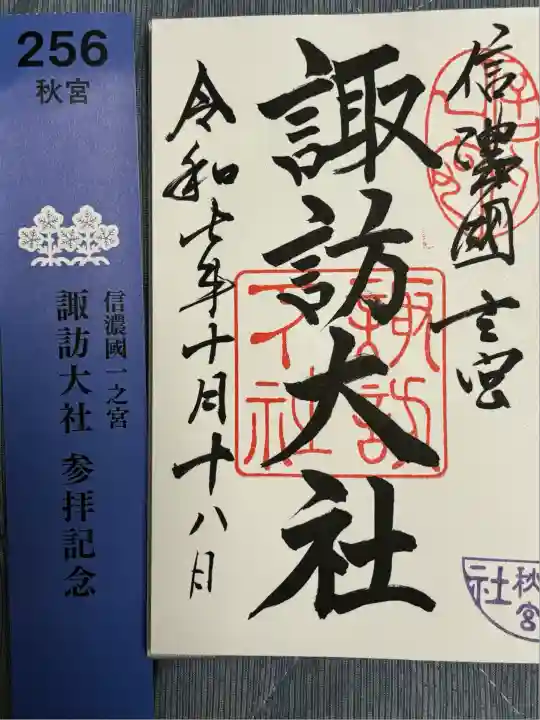 256
秋宮
信濃國一之宮
諏訪大社 参拝記念
信濃國一之宮
諏訪大社
令和七年十月十八日
諏訪
大社
秋宮
社